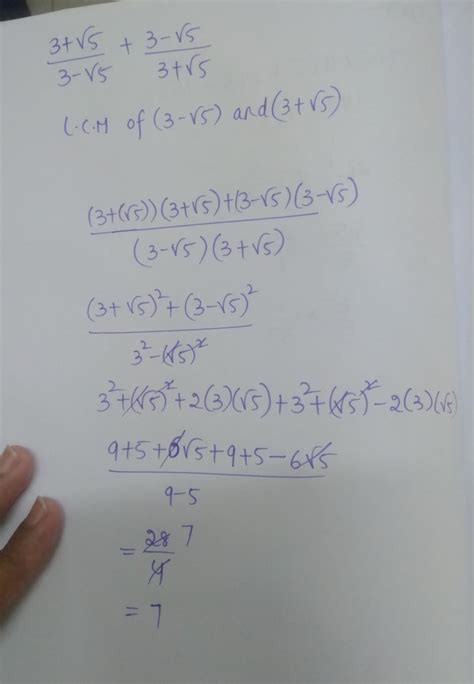 3+√5/3-√5 + 3-√5/3+√5
L.C.M of (3-√5) and (3+√5)
(3+(√5))(3+√5)+(3-√5)(3-√5)
(3-√5)(3+√5)
(3+√5)²+(3-√5)²
3²-(√5)²
3²+(√5)²+2(3)(√5)+3²+(√5)²-2(3)(√5)
9+5+6√5+9+5-6√5
9-5
= 28/4 7
= 7